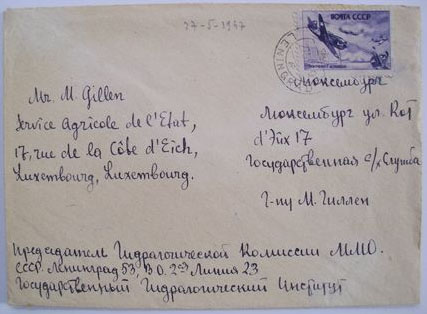 27-5-1947
ПОЧТА СССР
LENINGRAD
Люксембург
Mr. M. Gillen
Service Agricole de l'Etat,
17, rue de la Côte d'Eich,
Luxembourg, Luxembourg.
Люксембург ул. Кот
д'Эйх 17
Государственная с/х Служба
Г-ну М. Гиллен
Председатель Гидралогической Комиссии ММО.
СССР Ленинград 53, В.О. 2ая Линия 23
Государственный Гидралогический Институт